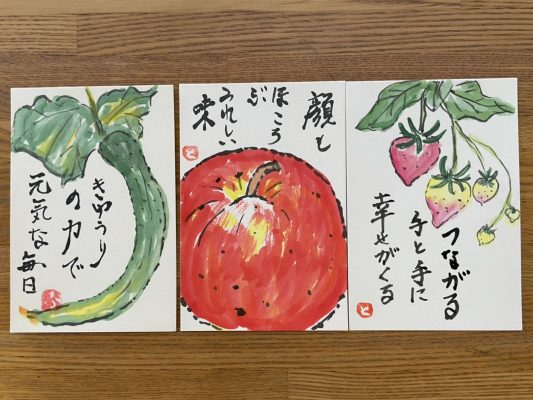 きゅうり
の力で
元気な毎日
顔も
ほころ
ぶ
うれしい
味
つながる
手と手に
幸せがくる
と